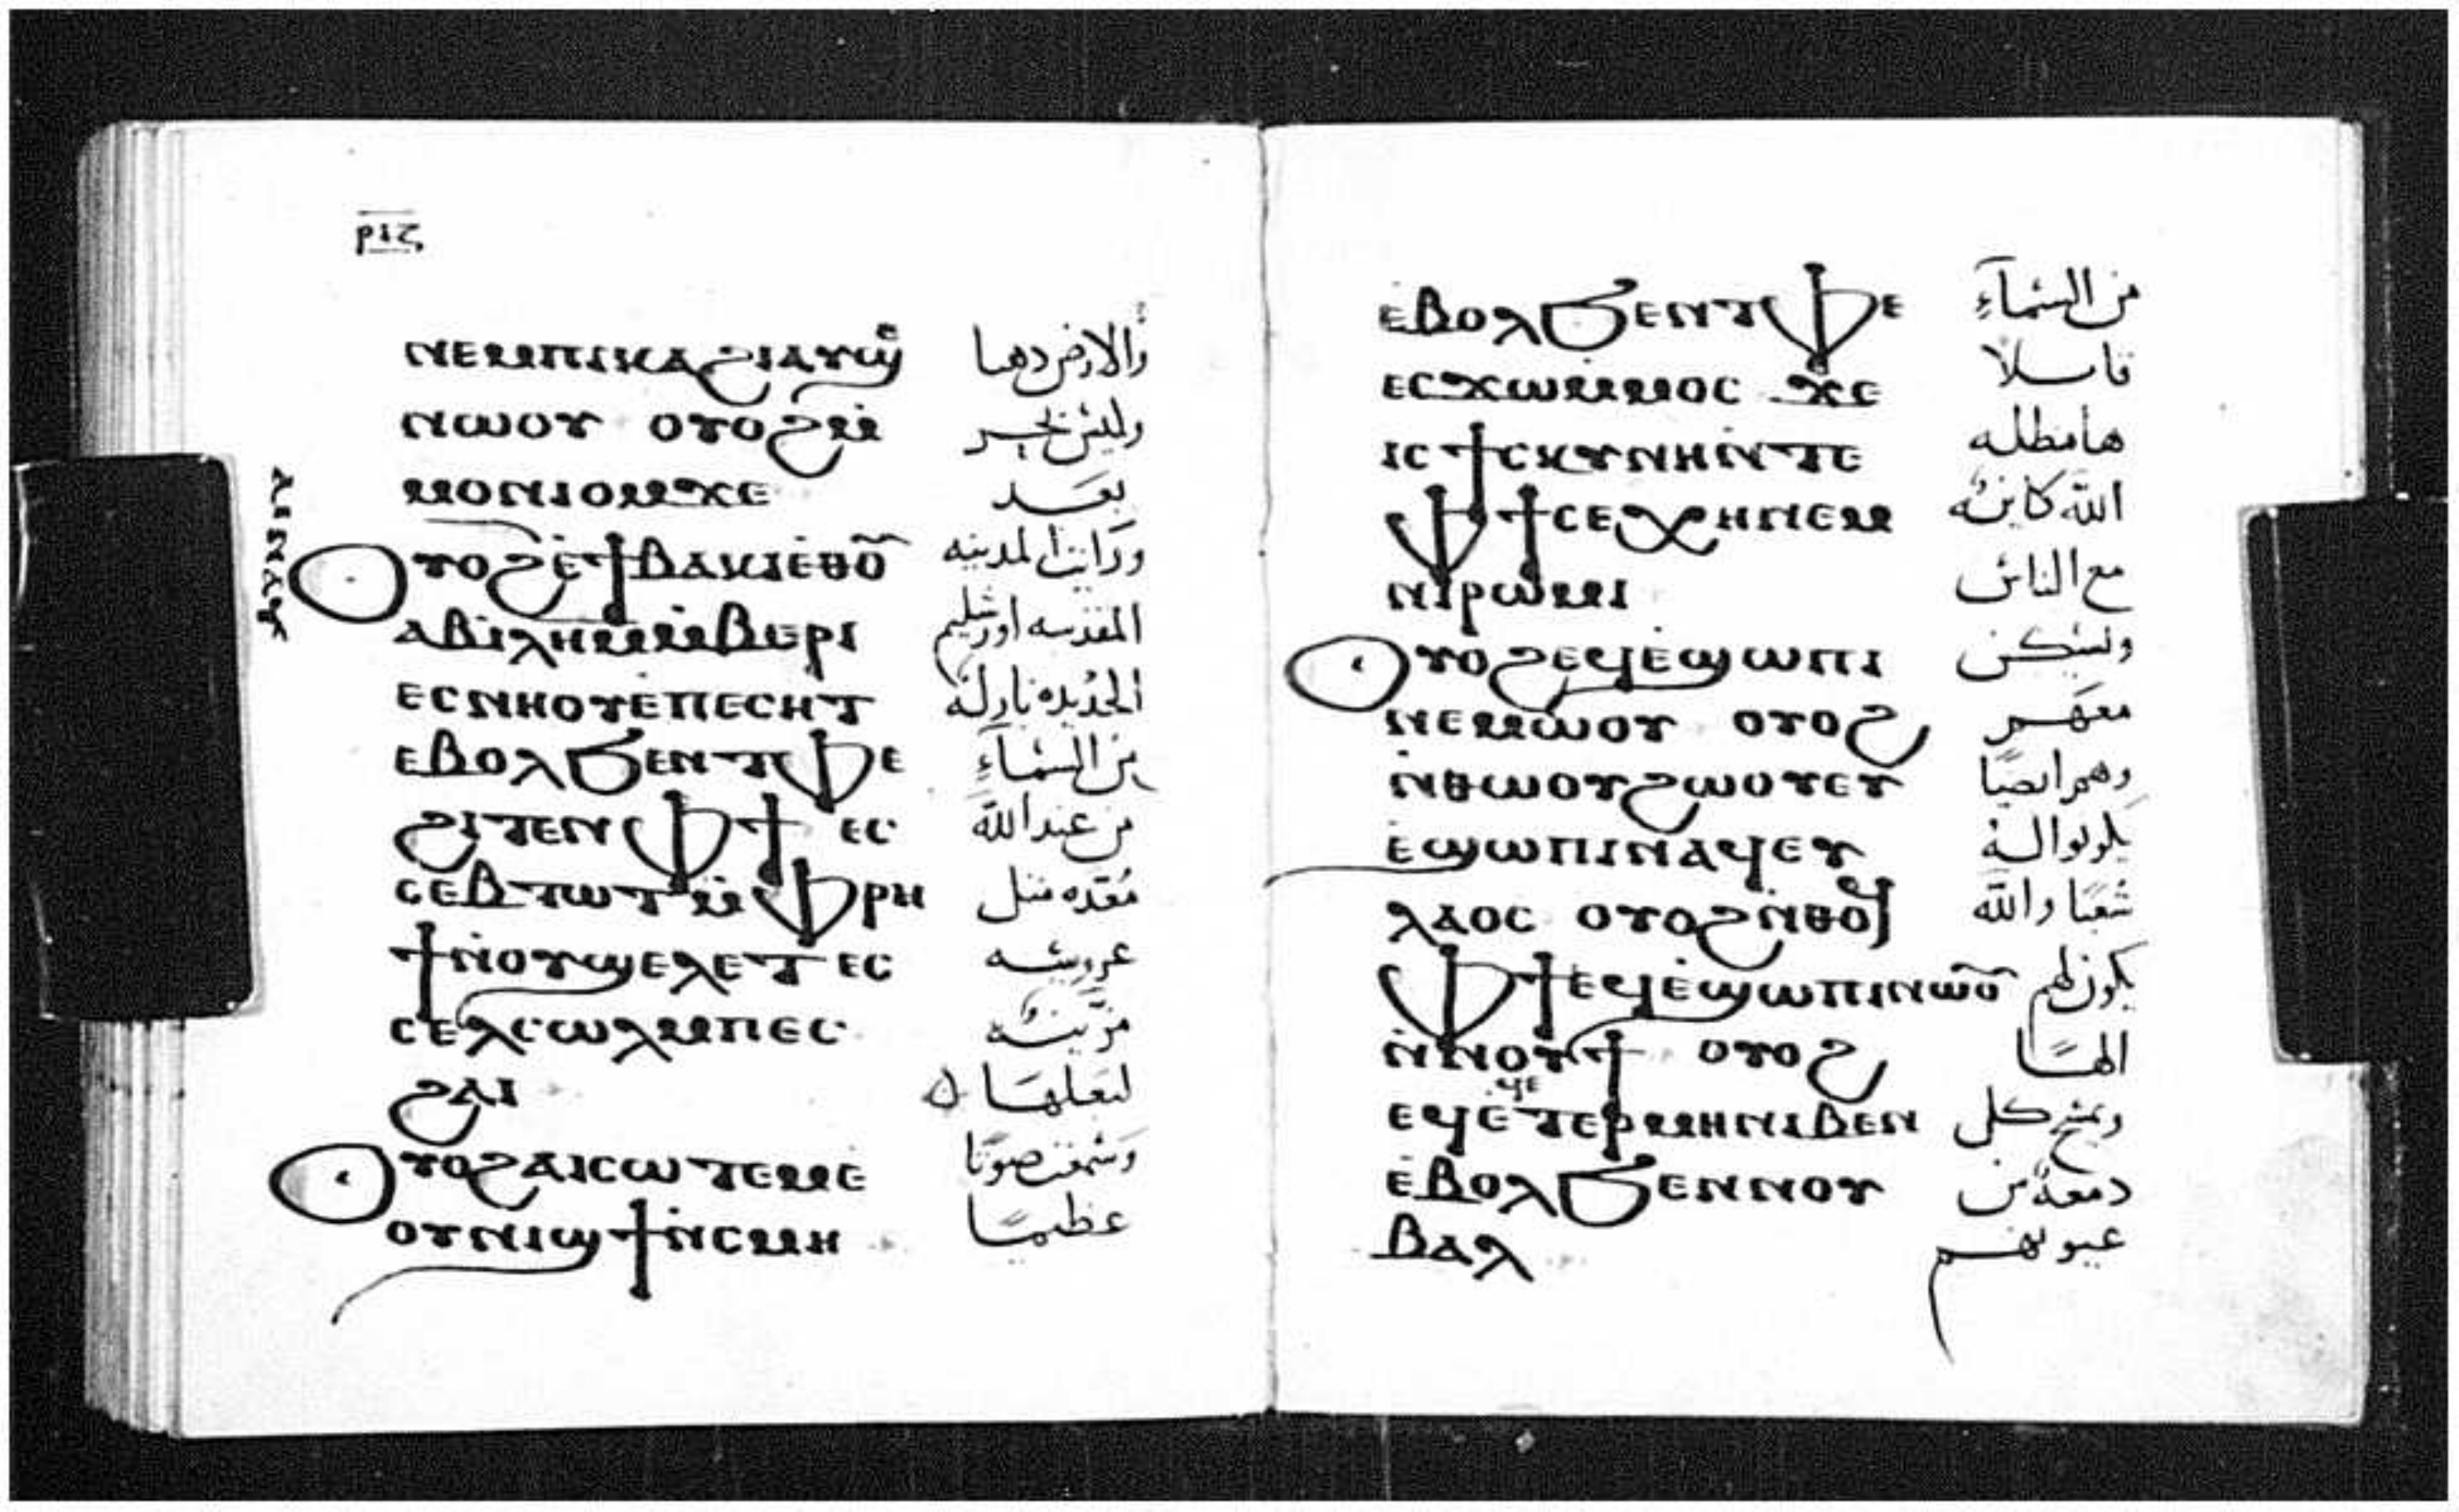 ⲣⲓⲍ
ⲛⲉⲙⲡⲓⲕⲁϩⲓⲁⲩϣⲉ والارض دهبا
ⲛⲱⲟⲩ ⲟⲩⲟϩⲙ̇ وليس بحر
ⲙⲟⲛⲓⲟⲙϫⲉ بعد
ⲟⲩⲟϩⲉ̇ϯⲃⲁⲕⲓⲉ̇ⲑⲟ̅ⲩ̅ ورايت المدينه
ⲁⲃⲓⲗⲏⲙⲙ̇ⲃⲉⲣⲓ المقدسه اورشليم
ⲉⲥⲛⲏⲟⲩⲉ̇ⲡⲉⲥⲏⲧ الجديده نازلة
ⲉⲃⲟⲗϧⲉⲛⲧⲫⲉ من السماء
ϩⲓⲧⲉⲛⲫϯ ⲉⲥ من عند الله
ⲥⲉⲃⲧⲱⲧⲙ̇ⲫⲣⲏ مُعَدّه مثل
ϯⲛ̇ⲟⲩϣⲉⲗⲉⲧ ⲉⲥ عروسه
ⲥⲉⲗⲥⲱⲗⲙⲡⲉⲥ مزّينة
ϩⲁⲓ لبعلها
ⲟⲩⲟϩⲁⲓⲥⲱⲧⲉⲙⲉ̇ وسمعت صوتًا
ⲟⲩⲛⲓϣϯⲛ̇ⲥⲙⲏ عظيمًا
ⲉ̇ⲃⲟⲗϧⲉⲛⲧⲫⲉ من السماء
ⲉⲥϫⲱⲙ̇ⲙⲟⲥ ϫⲉ قايلا
ⲓⲥϯⲥⲕⲩⲛⲏⲛ̇ⲧⲉ هامظله
ⲫϯⲥⲉⲭⲏⲛⲉⲙ الله كاينة
ⲛⲓⲣⲱⲙⲓ مع الناس
ⲟⲩⲟϩⲉϥⲉ̇ϣⲱⲡⲓ ويسكن
ⲛⲉⲙⲱⲟⲩ ⲟⲩⲟϩ معهم
ⲛ̇ⲑⲱⲟⲩϩⲱⲟⲩⲉⲩ وهم ايضًا
ⲉ̇ϣⲱⲡⲓⲛⲁϥⲉⲩ يكونوا له
ⲗⲁⲟⲥ ⲟⲩⲟϩⲛ̇ⲑⲟϥ شعبًا والله
ⲫϯⲉϥⲉ̇ϣⲱⲡⲓⲛⲱⲟ̅ⲩ̅ يكون لهم
ⲛ̇ⲛⲟⲩϯ ⲟⲩⲟϩ الهًا
ⲉϥⲉ̇ϥⲉⲧⲉⲣⲙⲏⲛⲓⲃⲉⲛ ويمسح كل
ⲉ̇ⲃⲟⲗϧⲉⲛⲛⲟⲩ دمعة من
ⲃⲁⲗ عيونهم